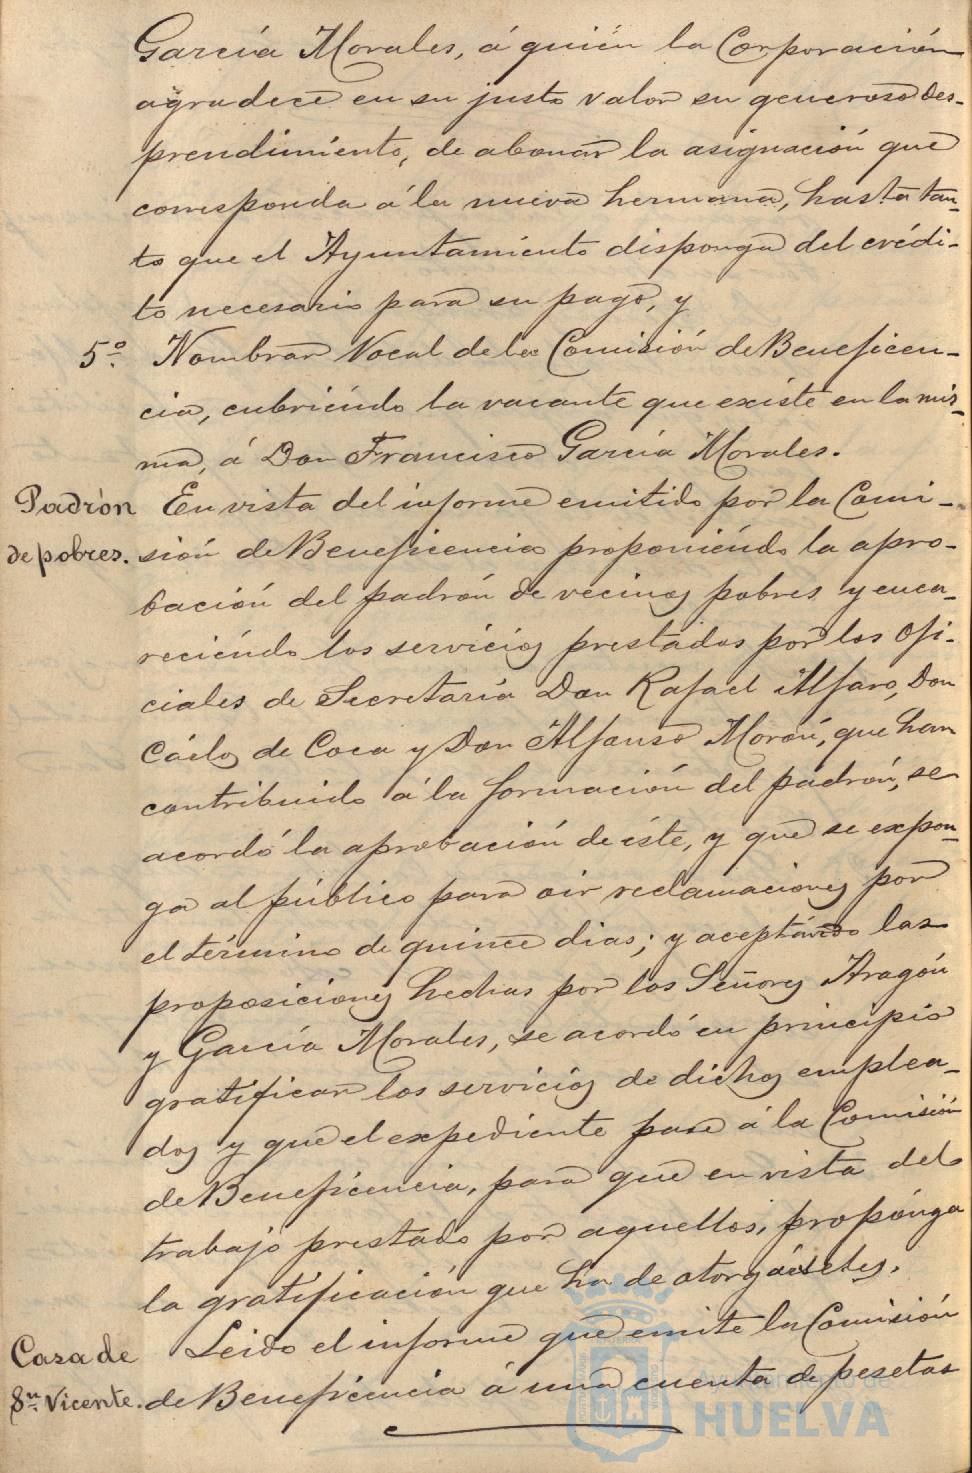 García Morales, á quién la Corporación
agradece en su justo valor su generoso des-
prendimiento, de abonar la asignación que
corresponda á la nueva hermana, hasta tan-
to que el Ayuntamiento disponga del crédi-
to necesario para su pago, y
5º. Nombrar Vocal de la Comisión de Beneficen-
cia, cubriéndo la vacante que existe en la mis-
ma, á Don Francisco García Morales.
Padrón En vista del informe emitido por la Comi-
de pobres. sión de Beneficencia proponiéndo la apro-
bación del padrón de vecinos pobres y enca-
reciéndo los servicios prestados por los ofi-
ciales de Secretaría Don Rafael Alfaro, Don
Cárlos de Coca y Don Alfonso Morón, que han
contribuido á la formación del padrón, se
acordó la aprobación de éste, y que se expon-
ga al público para oir reclamaciones por
el término de quince dias; y aceptándo las
proposiciones hechas por los Señores Aragón
y García Morales, se acordó en principio
gratificar los servicios de dichos emplea-
dos y que el expediente pase á la Comisión
de Beneficencia, para que en vista del
trabajo prestado por aquellos, propónga
la gratificación que ha de otorgárseles.
Casa de Leido el informe que emite la Comisión
Sn. Vicente. de Beneficencia á una cuenta de pesetas
Ayuntamiento de
HUELVA